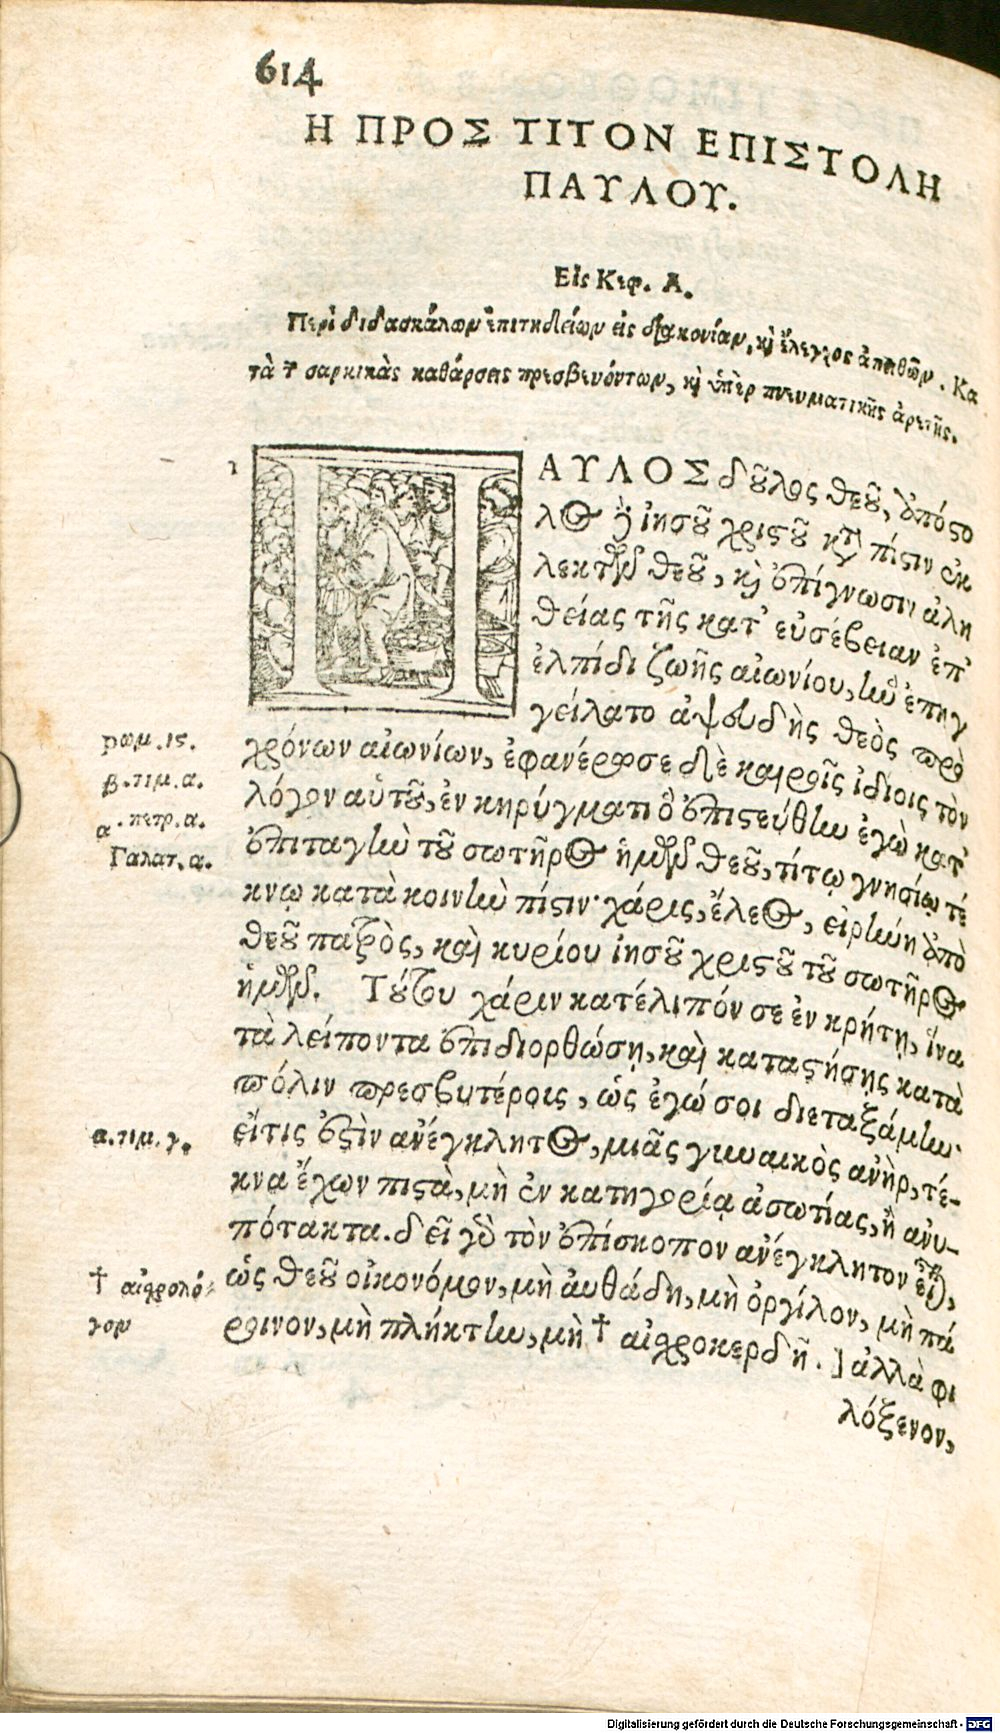 614
Η ΠΡΟΣ ΤΙΤΟΝ ΕΠΙΣΤΟΛΗ
ΠΑΥΛΟΥ.
Εἰς Κεφ. Α.
Περὶ διδασκάλων ἐπιτηδείων εἰς διακονίαν, καὶ ἔλεγχος ἀπειθῶν. Κα
τὰ τ σαρκικὰς καθάρσεις πρεσβευόντων, καὶ ὑπὲρ πνευματικῆς ἀρετῆς.
1
ΠΑΥΛΟΣ δοῦλος θεοῦ, ἀπόστο
λος δὲ ἰησοῦ χριστοῦ κατὰ πίστιν ἐκ
λεκτῶν θεοῦ, καὶ ἐπίγνωσιν ἀλη
θείας τῆς κατ' εὐσέβειαν ἐπ'
ἐλπίδι ζωῆς αἰωνίου, ἣν ἐπηγ
γείλατο ἀψευδὴς θεὸς πρὸ
χρόνων αἰωνίων, ἐφανέρωσε δὲ καιροῖς ἰδίοις τὸν
λόγον αὑτοῦ, ἐν κηρύγματι ὃ ἐπιστεύθην ἐγὼ κατ'
ἐπιταγὴν τοῦ σωτῆρος ἡμῶν θεοῦ, τίτῳ γνησίῳ τέ
κνῳ κατὰ κοινὴν πίστιν· χάρις, ἔλεος, εἰρήνη ἀπὸ
θεοῦ πατρὸς, καὶ κυρίου ἰησοῦ χριστοῦ τοῦ σωτῆρος
ἡμῶν. Τούτου χάριν κατέλιπόν σε ἐν κρήτῃ, ἵνα
τὰ λείποντα ἐπιδιορθώσῃ, καὶ καταστήσῃς κατὰ
πόλιν πρεσβυτέροις, ὡς ἐγώ σοι διεταξάμην·
εἴτις ἐστὶν ἀνέγκλητος, μιᾶς γυναικὸς ἀνὴρ, τέ-
κνα ἔχων πιστὰ, μὴ ἐν κατηγορίᾳ ἀσωτίας, ἢ ἀνυ-
πότακτα. δεῖ γὰρ τὸν ἐπίσκοπον ἀνέγκλητον εἶναι,
ὡς θεοῦ οἰκονόμον, μὴ αὐθάδη, μὴ ὀργίλον, μὴ πά
ροινον, μὴ πλήκτην, μὴ † αἰσχροκερδῆ. ] ἀλλὰ φι
λόξενον,
ρωμ. ις.
β. τιμ. α.
α. πετρ. α.
Γαλατ. α.
α. τιμ. γ.
† αἰσχρολό-
γον
Digitalisierung gefördert durch die Deutsche Forschungsgemeinschaft - DFG